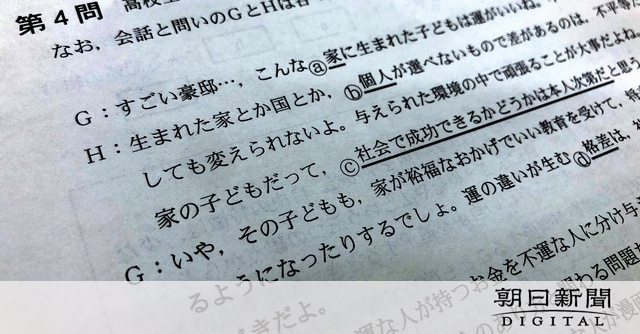 第4問 高校生
なお，会話と問いのGとHは各
G：すごい豪邸…，こんなⓐ家に生まれた子どもは運がいいね。
H：生まれた家とか国とか，ⓑ個人が選べないもので差があるのは，不平等だ
しても変えられないよ。与えられた環境の中で頑張ることが大事だよね
家の子どもだって，ⓒ社会で成功できるかどうかは本人次第だと思う
G：いや，その子どもも，家が裕福なおかげでいい教育を受けて，
るようになったりするでしょ。運の違いが生むⓓ格差は，
きだよ。
運な人が持つお金を不運な人に分け与
朝日新聞
DIGITAL